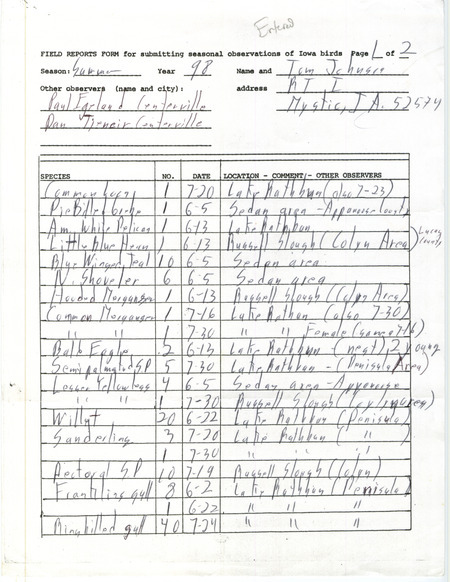 Entered
FIELD REPORTS FORM for submitting seasonal observations of Iowa birds Page 1 of 2
Season: Summer Year 98 Name and Tom Johnson
Other observers (name and city): address RT 1
Paul Egeland Centerville Mystic, IA. 52574
Dan Centerville
SPECIES NO. DATE LOCATION - COMMENT/- OTHER OBSERVERS
Common Loon 1 7-20 Lake Rathbun (also 7-23)
Pie Billed Grebe 1 6-5 Sedan area - Appanoose County
Am. White Pelican 1 6-13 Lake Rathbun
Little blue Heron 1 6-13 Russell Slough (Colyn Area) Lucas County
Blue Winged Teal 10 6-5 Sedan area
N. Shoveler 6 6-5 Sedan area
Hooded Merganser 1 6-13 Russell Slough (Colyn Area)
Common Merganser 1 7-16 Lake Rathbun (also 7-30)
" " 1 7-30 " " Female (same 7-16)
Bald Eagle 2 6-13 Lake Rathbun - (nest) 2 young
Semipalmated SP 5 7-30 Lake Rathbun - (Penisula Area)
Lesser Yellowlegs 4 6-5 Sedan area - Appanoose
1 7-30 Russell Slough (Colyn area)
Willet 20 6-22 Lake Rathbun (Penisula)
Sanderling 3 7-20 Lake Rathbun ( " )
1 7-30 " " "
Pectoral SP 10 7-19 Russell Slough (Colyn)
Franklins gull 8 6-2 Lake Rathbun (Penisula)
1 6-22 " " "
Ringbilled gull 40 7-24 " " "